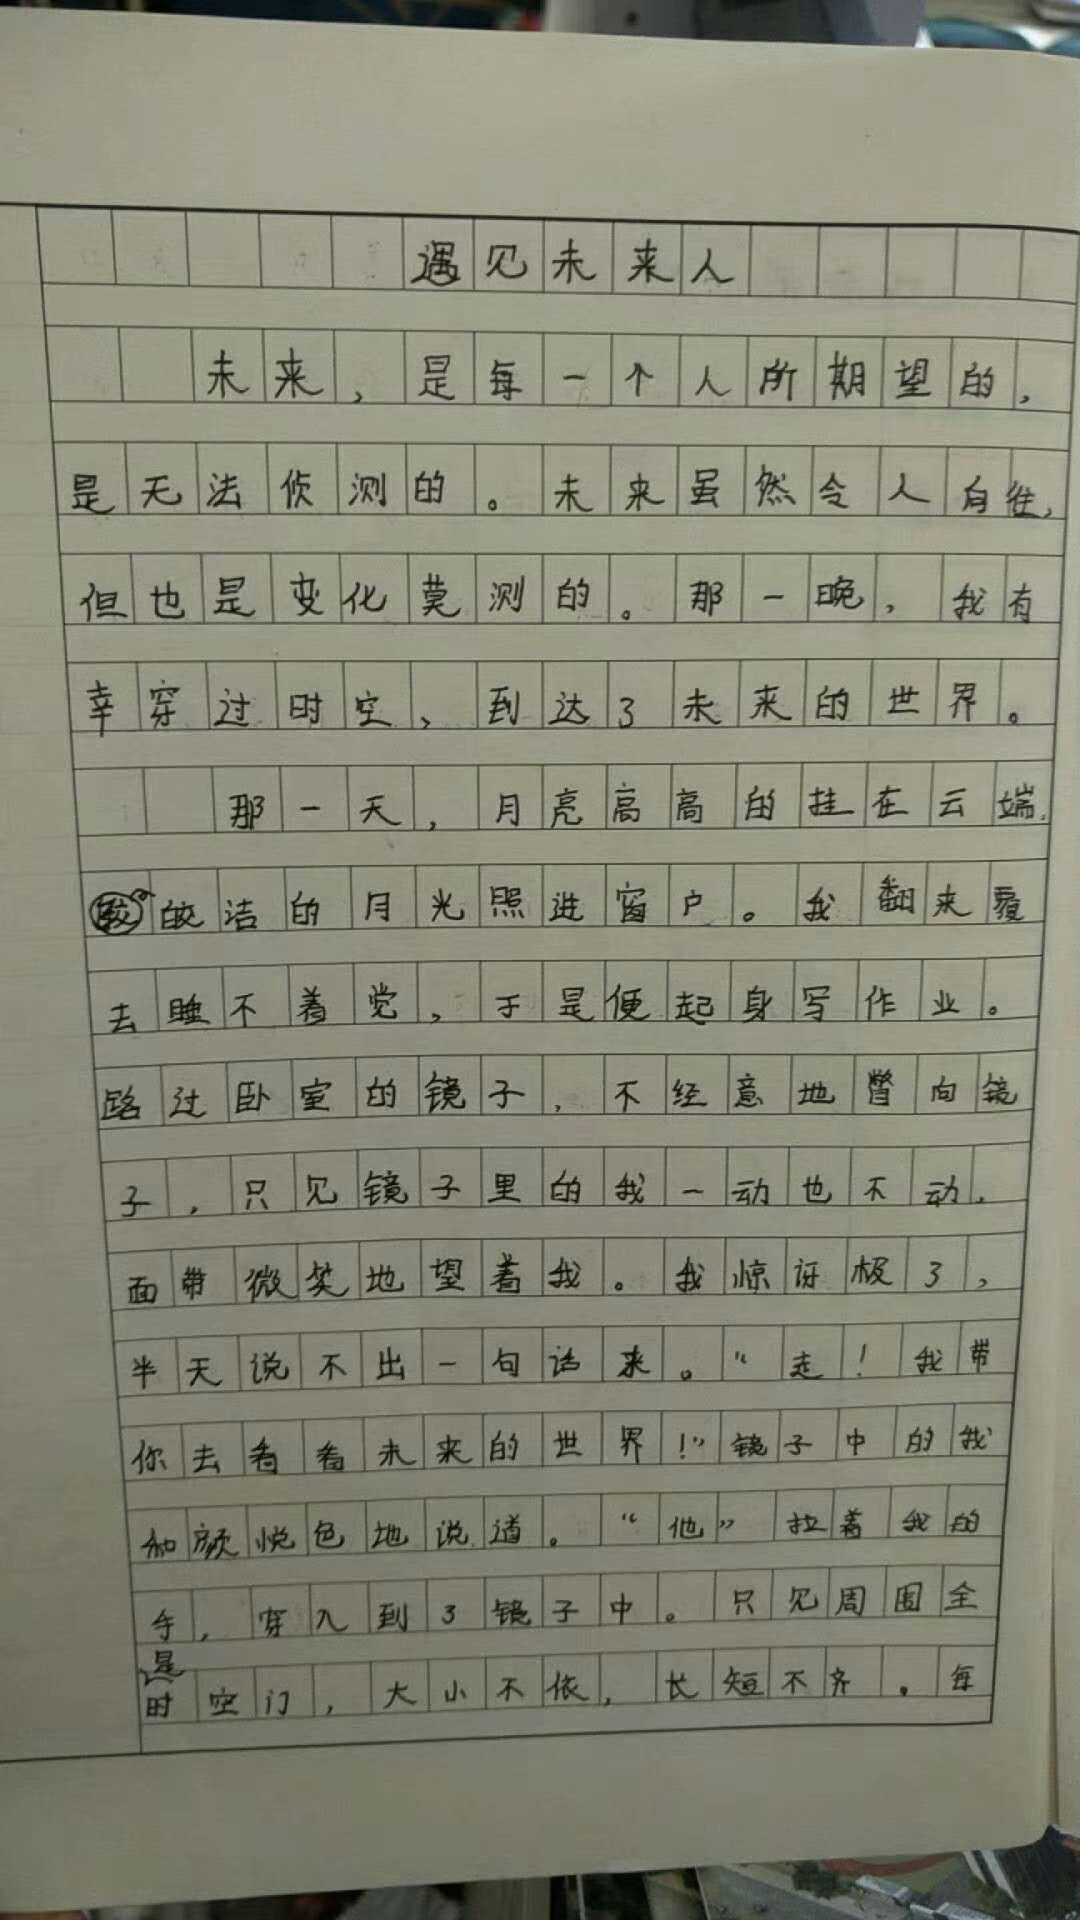 遇见未来人
未来，是每一个人所期望的，
是无法侦测的。未来虽然令人向往，
但也是变化莫测的。那一晚，我有
幸穿过时空，到达了未来的世界。
那一天，月亮高高的挂在云端，
皎洁的月光照进窗户。我翻来覆
去睡不着觉，于是便起身写作业。
路过卧室的镜子，不经意地瞥向镜
子，只见镜子里的我一动也不动，
面带微笑地望着我。我惊讶极了，
半天说不出一句话来。“走！我带
你去看看未来的世界！”镜子中的我
和颜悦色地说道。“他”拉着我的
手，穿入到了镜子中。只见周围全
是时空门，大小不依，长短不齐。每